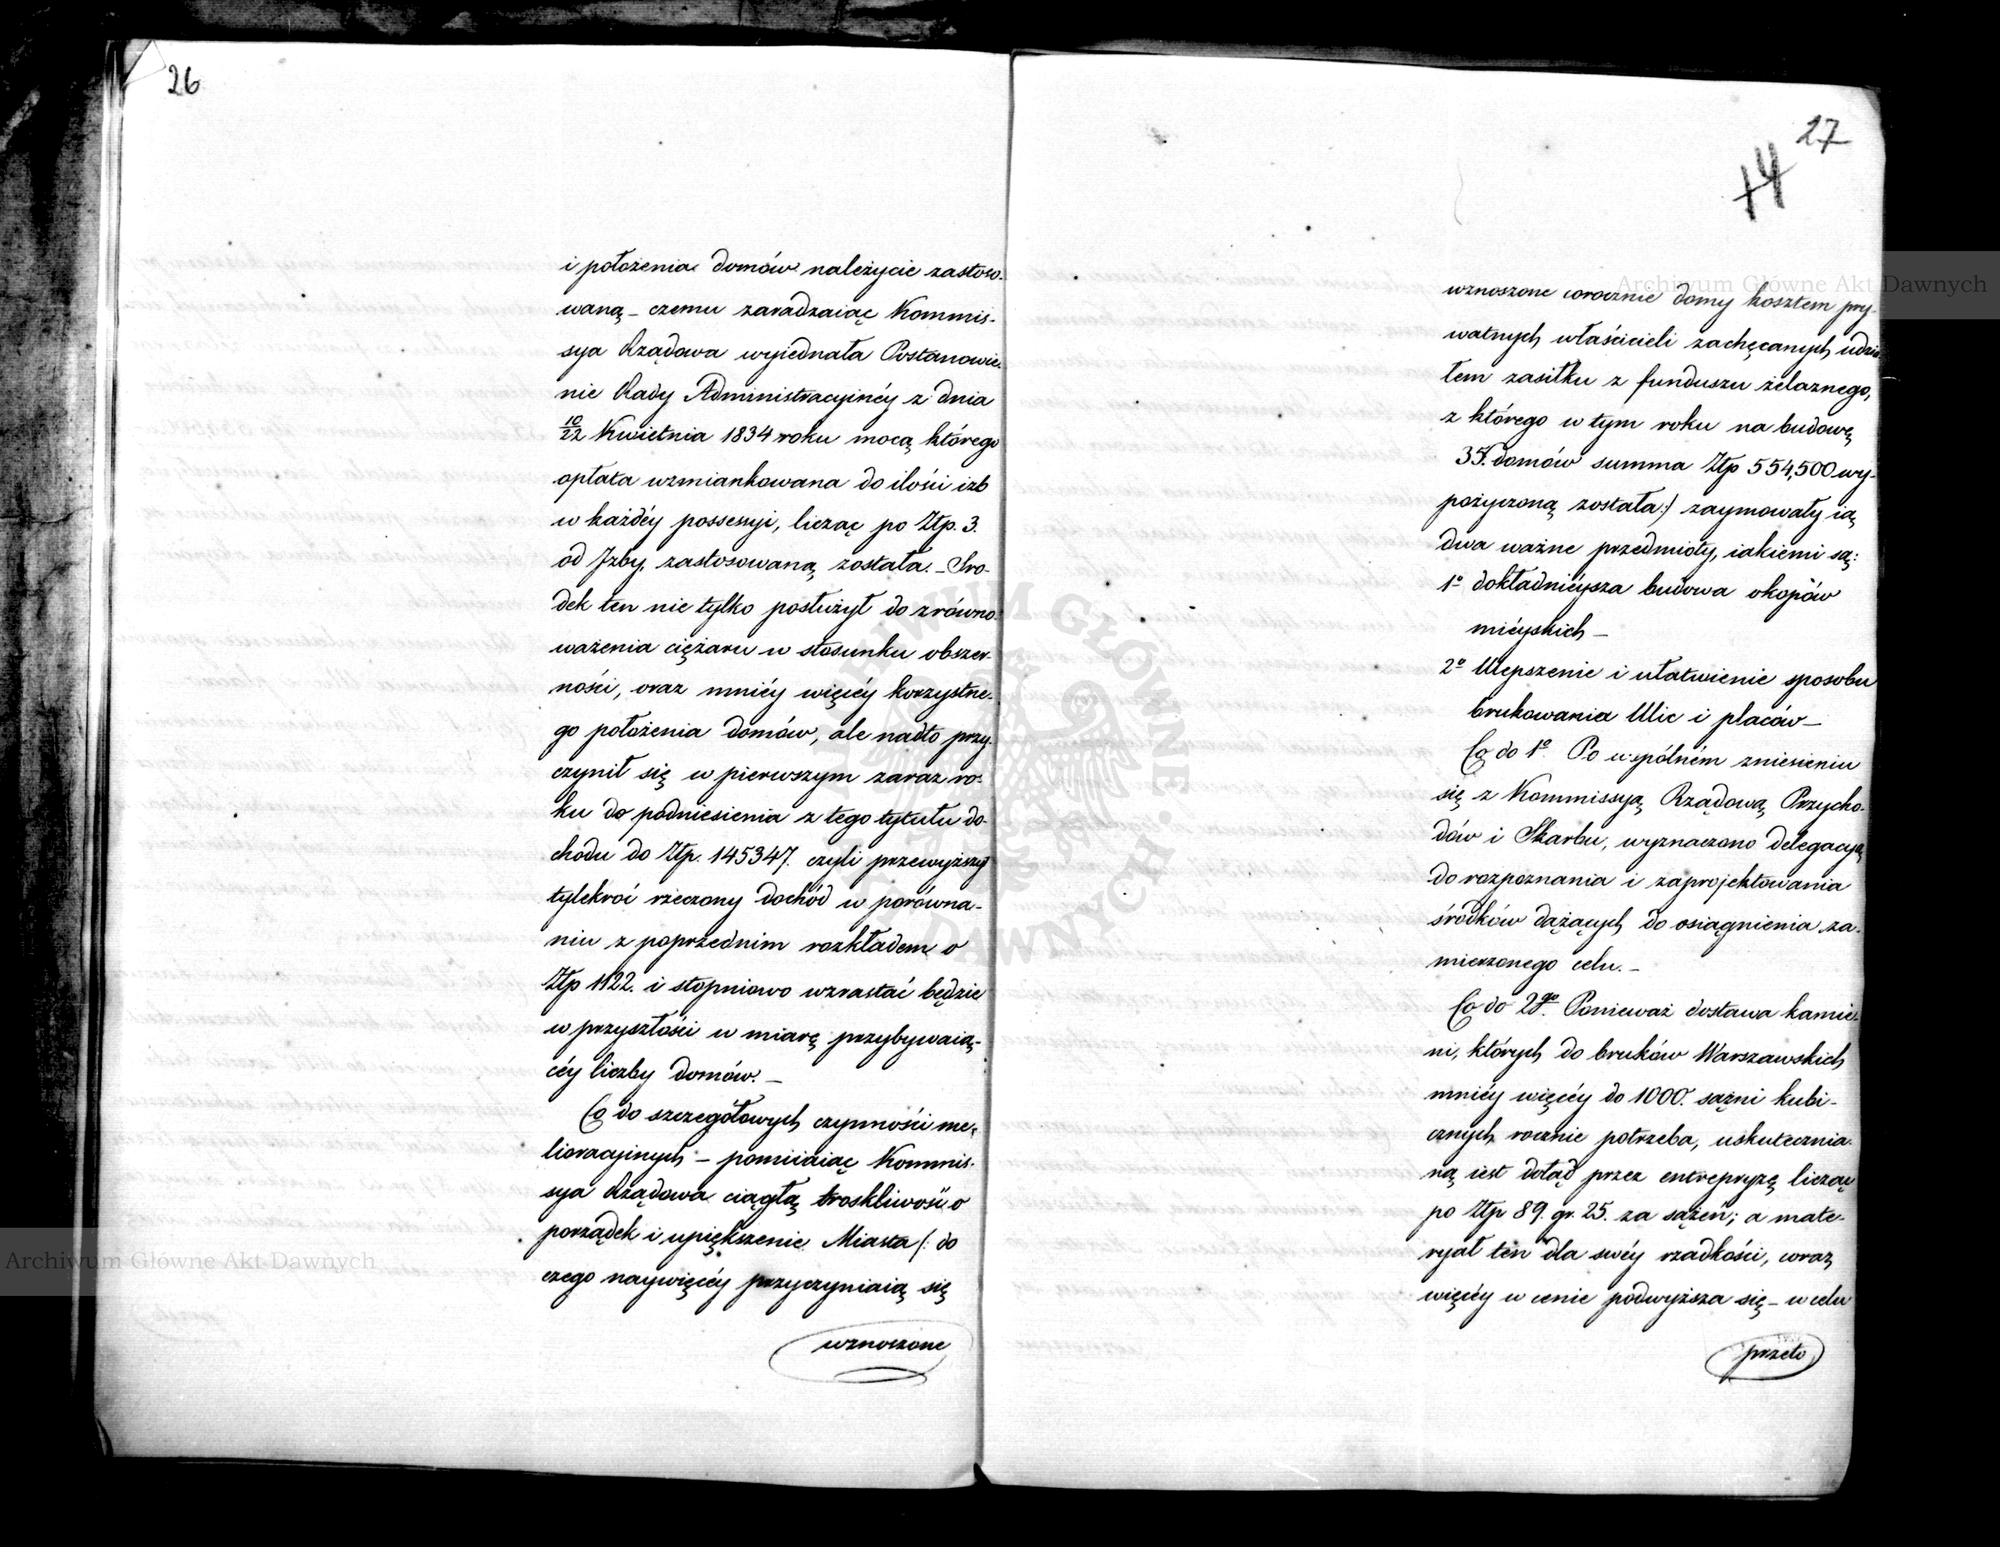 26
i położenia domów należycie zastoso-
waną – czemu zaradzaiąc Kommis-
sya Rządowa wyiednała Postanowie-
nie Rady Administracyinéy z dnia
10/22 Kwietnia 1834 roku mocą którego
opłata wzmiankowana do ilości izb
w każdéy possessyi, licząc po Złp. 3.
od Jzby, zastosowaną została. – Śro-
dek ten nie tylko posłużył do zrówno-
ważenia ciężaru w stosunku obszer-
ności, oraz mniéy więcéy korzystne-
go położenia domów, ale nadto przy-
czynił się w pierwszym zaraz ro-
ku do podniesienia z tego tytułu do-
chodu do Złp. 145347. czyli przewyższył
tylekroć rzeczony dochód w porówna-
niu z poprzednim rozkładem o
Złp 1122. i stopniowo wzrastać będzie
w przyszłości w miarę przybywaią-
céy liczby domów. –
Co do szczegółowych czynności me-
lioracyinych – pomiiaiąc Kommis-
sya Rządowa ciągłą troskliwość o
porządek i upiększenie Miasta /: do
czego naywięcéy przyczyniaią się
wznoszone
27
14
wznoszone corocznie domy kosztem pry-
watnych właścicieli zachęcanych udzia-
łem zasiłku z funduszu żelaznego,
z którego w tym roku na budowę
35. domów summa Złp 554,500 wy-
pożyczoną została:/ zaymowały ią
dwa ważne przedmioty, iakiemi są:
1º dokładnieysza budowa okopów
miéyskich –
2º Ulepszenie i ułatwienie sposobu
brukowania Ulic i placów –
Co do 1º. Po wspólném zniesieniu
się z Kommissyą Rządową Przycho-
dów i Skarbu, wyznaczono delegacyą
do rozpoznania i zaprojektowania
środków dążących do osiągnienia za-
mierzonego celu. –
Co do 2go. Ponieważ dostawa kamie-
ni, których do bruków Warszawskich
mniéy więcéy do 1000. sążni kubi-
cznych rocznie potrzeba, uskutecznia-
ną iest dotąd przez entrepryzę licząc
po Złp 89. gr. 25. za sążeń; a mate-
ryał ten dla swéy rzadkości, coraz
więcéy w cenie podwyższa się – w celu
przeto
Archiwum Główne Akt Dawnych
Archiwum Główne Akt Dawnych
ARCHIWUM GŁÓWNE · AKT DAWNYCH ·